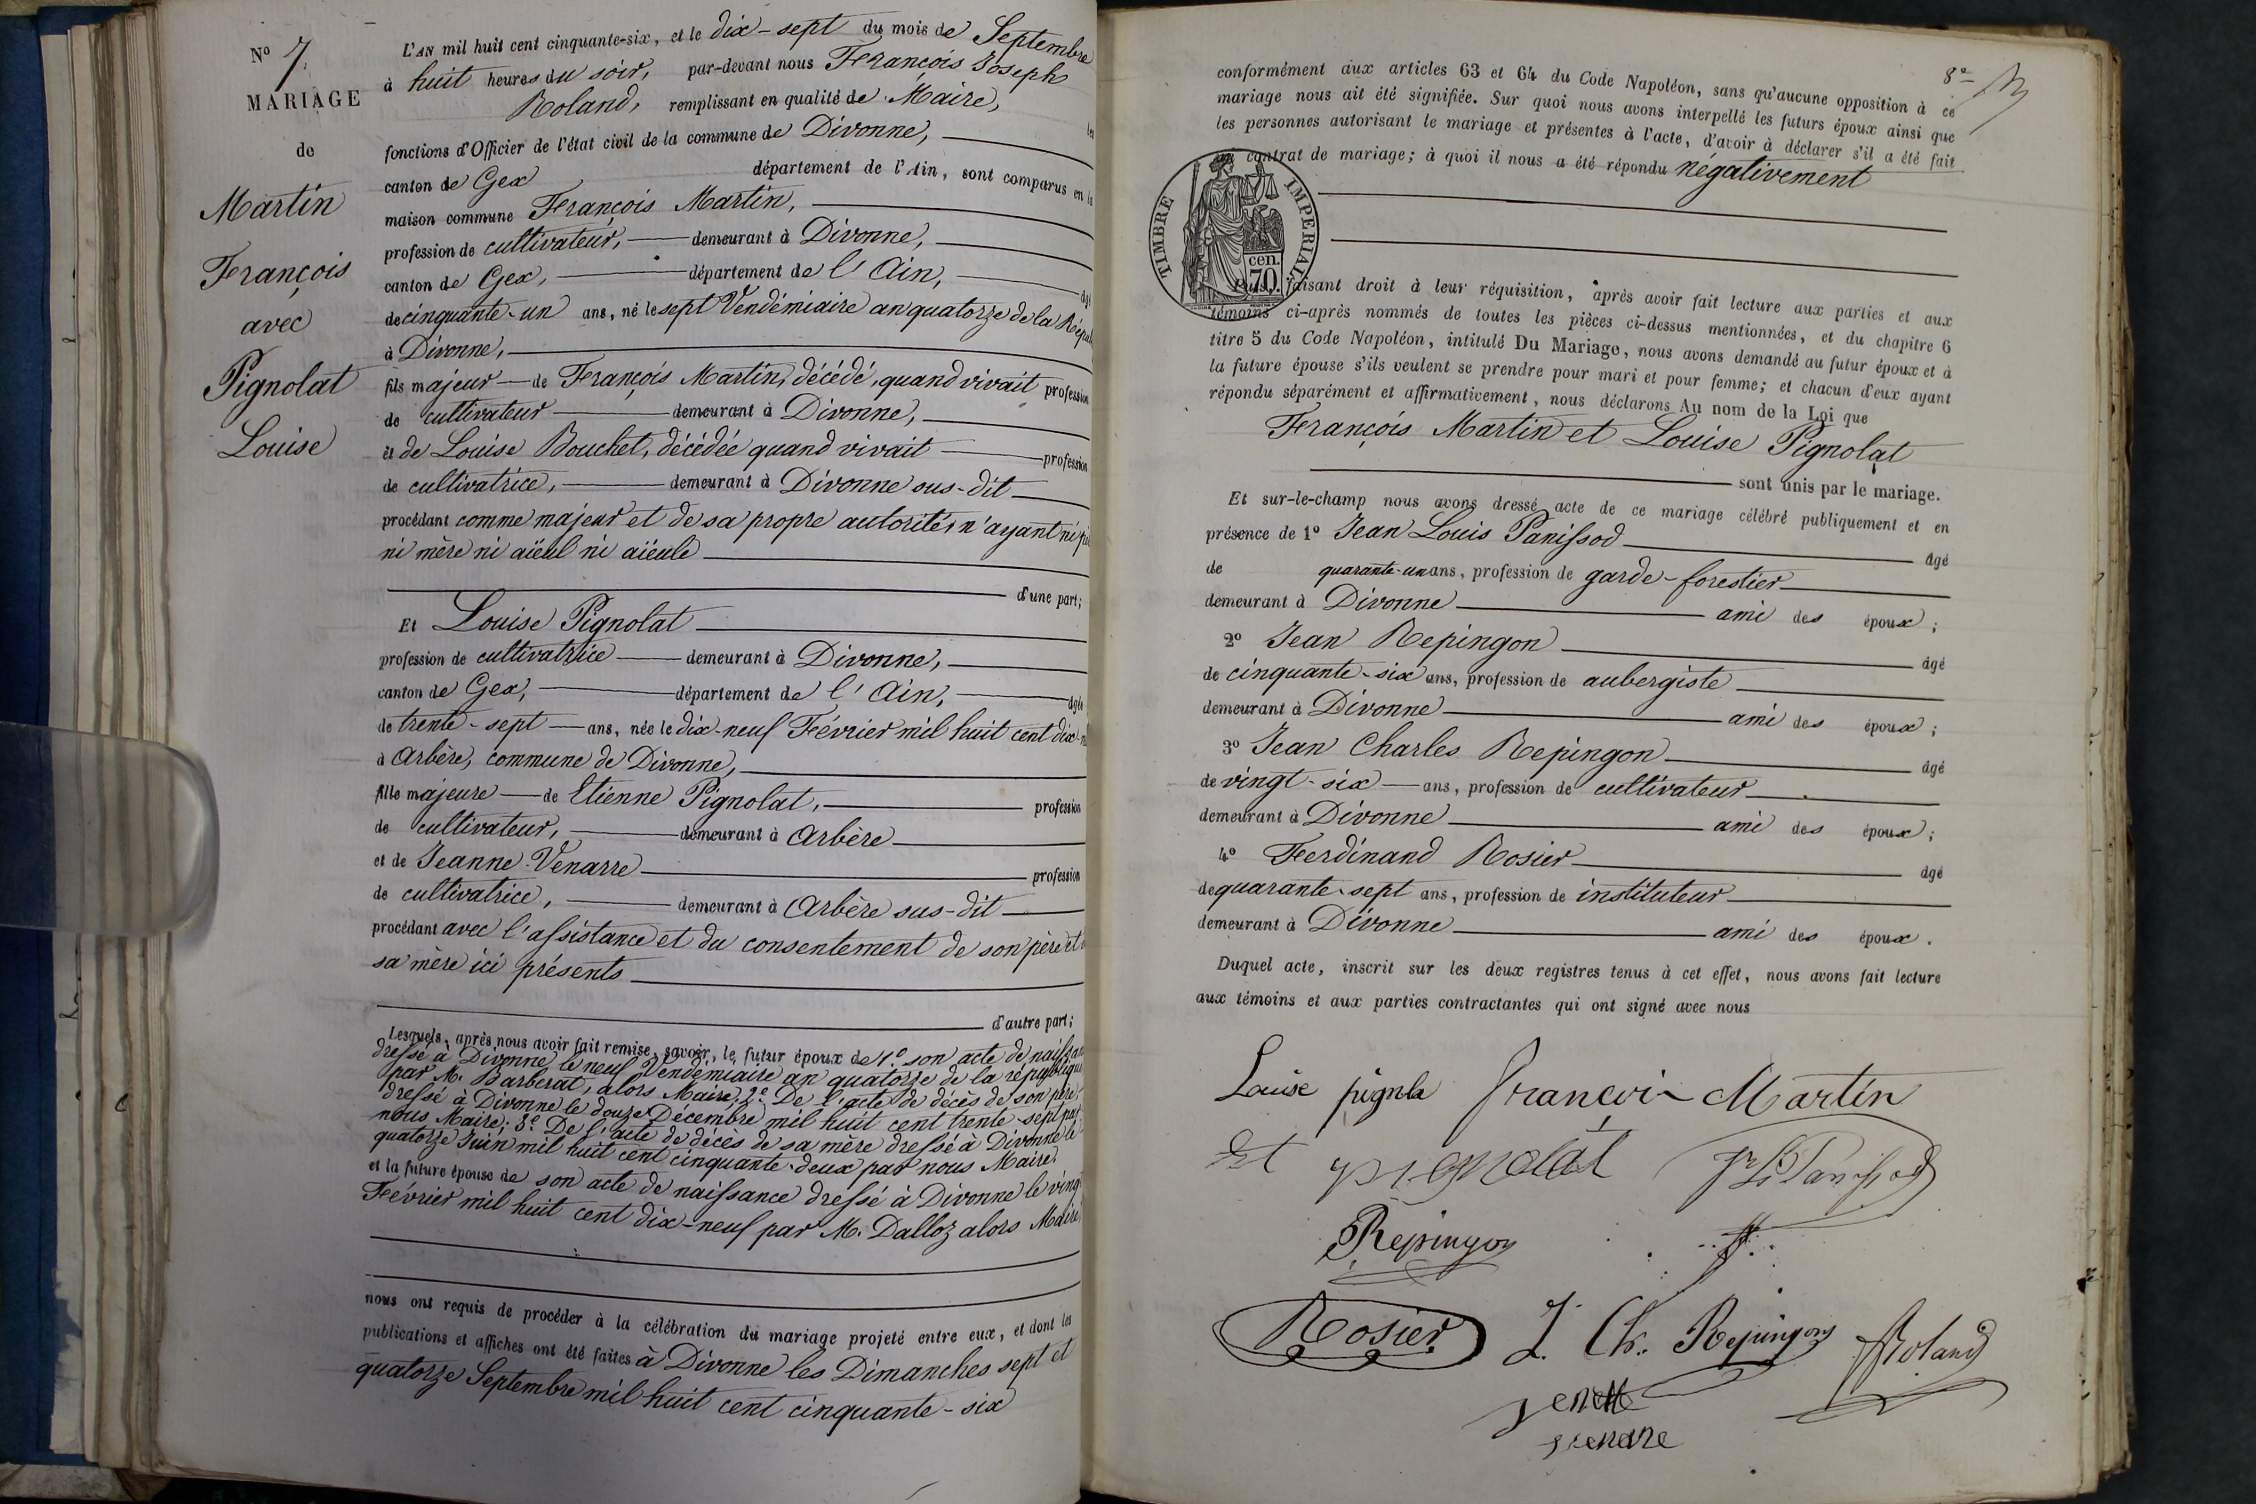 Nº 7.
MARIAGE
de
Martin
François
avec
Pignolat
Louise
L'AN mil huit cent cinquante-six, et le dix-sept du mois de Septembre
à huit heures du soir, par-devant nous François Joseph
Roland, remplissant en qualité de Maire, les
fonctions d'Officier de l'état civil de la commune de Divonne,
canton de Gex département de l'Ain, sont comparus en la
maison commune François Martin,
profession de cultivateur, demeurant à Divonne,
canton de Gex, département de l'Ain,
de cinquante-un ans, né le sept Vendémiaire an quatorze de la
à Divonne,
fils majeur de François Martin, décédé, quand vivait profession
de cultivateur demeurant à Divonne,
et de Louise Bouchet, décédée quand vivait profession
de cultivatrice, demeurant à Divonne sus-dit
procédant comme majeur et de sa propre autorité, n'ayant ni
ni mère ni aïeul ni aïeule
d'une part;
Et Louise Pignolat
profession de cultivatrice demeurant à Divonne,
canton de Gex, département de l'Ain, âgée
de trente-sept ans, née le dix-neuf Février mil huit cent dix-
à Arbère, commune de Divonne,
fille majeure de Etienne Pignolat, profession
de cultivateur, demeurant à Arbère
et de Jeanne Venarre profession
de cultivatrice, demeurant à Arbère sus-dit
procédant avec l'assistance et du consentement de son père et
sa mère ici présents
d'autre part;
Lesquels, après nous avoir fait remise, savoir, le futur époux de 1º son acte de
dressé à Divonne le neuf Vendémiaire an quatorze de la république
par M. Barberat, alors Maire; 2º De l'acte de décès de son père,
dressé à Divonne le douze Décembre mil huit cent trente-sept par
nous Maire; 3º De l'acte de décès de sa mère dressé à Divonne le
quatorze Juin mil huit cent cinquante-deux par nous Maire.
et la future épouse de son acte de naissance dressé à Divonne le vingt
Février mil huit cent dix-neuf par M. Dalloz alors Maire
nous ont requis de procéder à la célébration du mariage projeté entre eux, et dont les
publications et affiches ont été faites à Divonne les Dimanches sept et
quatorze Septembre mil huit cent cinquante-six
8e
conformément aux articles 63 et 64 du Code Napoléon, sans qu'aucune opposition à ce
mariage nous ait été signifiée. Sur quoi nous avons interpellé les futurs époux ainsi que
les personnes autorisant le mariage et présentes à l'acte, d'avoir à déclarer s'il a été fait
un contrat de mariage; à quoi il nous a été répondu négativement
TIMBRE IMPERIAL
cen.
70.
Puis, faisant droit à leur réquisition, après avoir fait lecture aux parties et aux
témoins ci-après nommés de toutes les pièces ci-dessus mentionnées, et du chapitre 6
titre 5 du Code Napoléon, intitulé Du Mariage, nous avons demandé au futur époux et à
la future épouse s'ils veulent se prendre pour mari et pour femme; et chacun d'eux ayant
répondu séparément et affirmativement, nous déclarons Au nom de la Loi que
François Martin et Louise Pignolat
sont unis par le mariage.
Et sur-le-champ nous avons dressé acte de ce mariage célébré publiquement et en
présence de 1º Jean Louis Panissod âgé
de quarante-un ans, profession de garde-forestier
demeurant à Divonne ami des époux;
2º Jean Repingon âgé
de cinquante-six ans, profession de aubergiste
demeurant à Divonne ami des époux;
3º Jean Charles Repingon âgé
de vingt-six ans, profession de cultivateur
demeurant à Divonne ami des époux;
4º Ferdinand Rosier âgé
de quarante-sept ans, profession de instituteur
demeurant à Divonne ami des époux.
Duquel acte, inscrit sur les deux registres tenus à cet effet, nous avons fait lecture
aux témoins et aux parties contractantes qui ont signé avec nous
Louise pignola François Martin
Et pignolat J Ls Panissod
Repingon
Rosier J. Ch. Repingon Roland